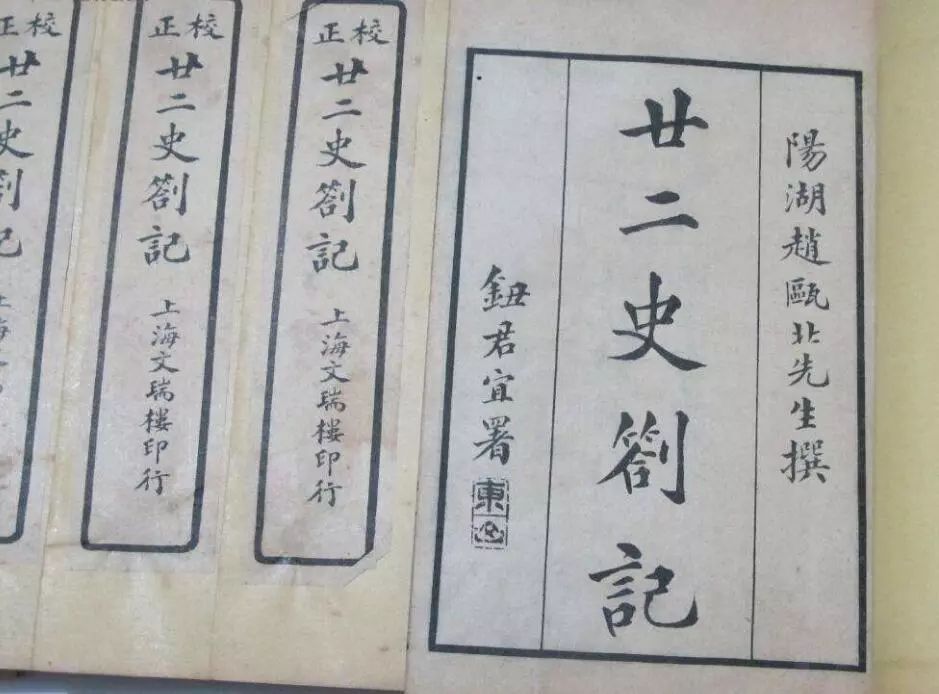 陽湖趙甌北先生撰
廿二史劄記
鈕君宜署
校正
廿二史劄記
上海文瑞樓印行
校正
廿二史劄記
上海文瑞樓印行
校正
廿二史劄記
上海文